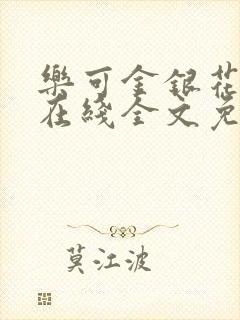 樂可金銀花
在綫全文免
莫江波